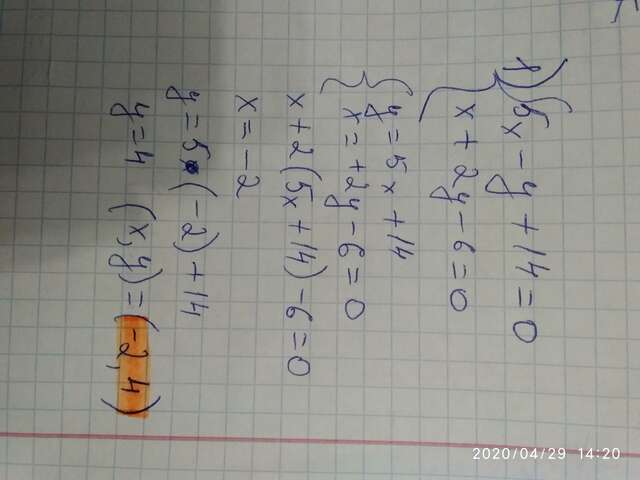 1) 5x - y + 14 = 0
x + 2y - 6 = 0
y = 5x + 14
x = + 2y - 6 = 0
x + 2(5x + 14) - 6 = 0
x = -2
y = 5 · (-2) + 14
y = 4 (x, y) = (-2, 4)
2020/04/29 14:20